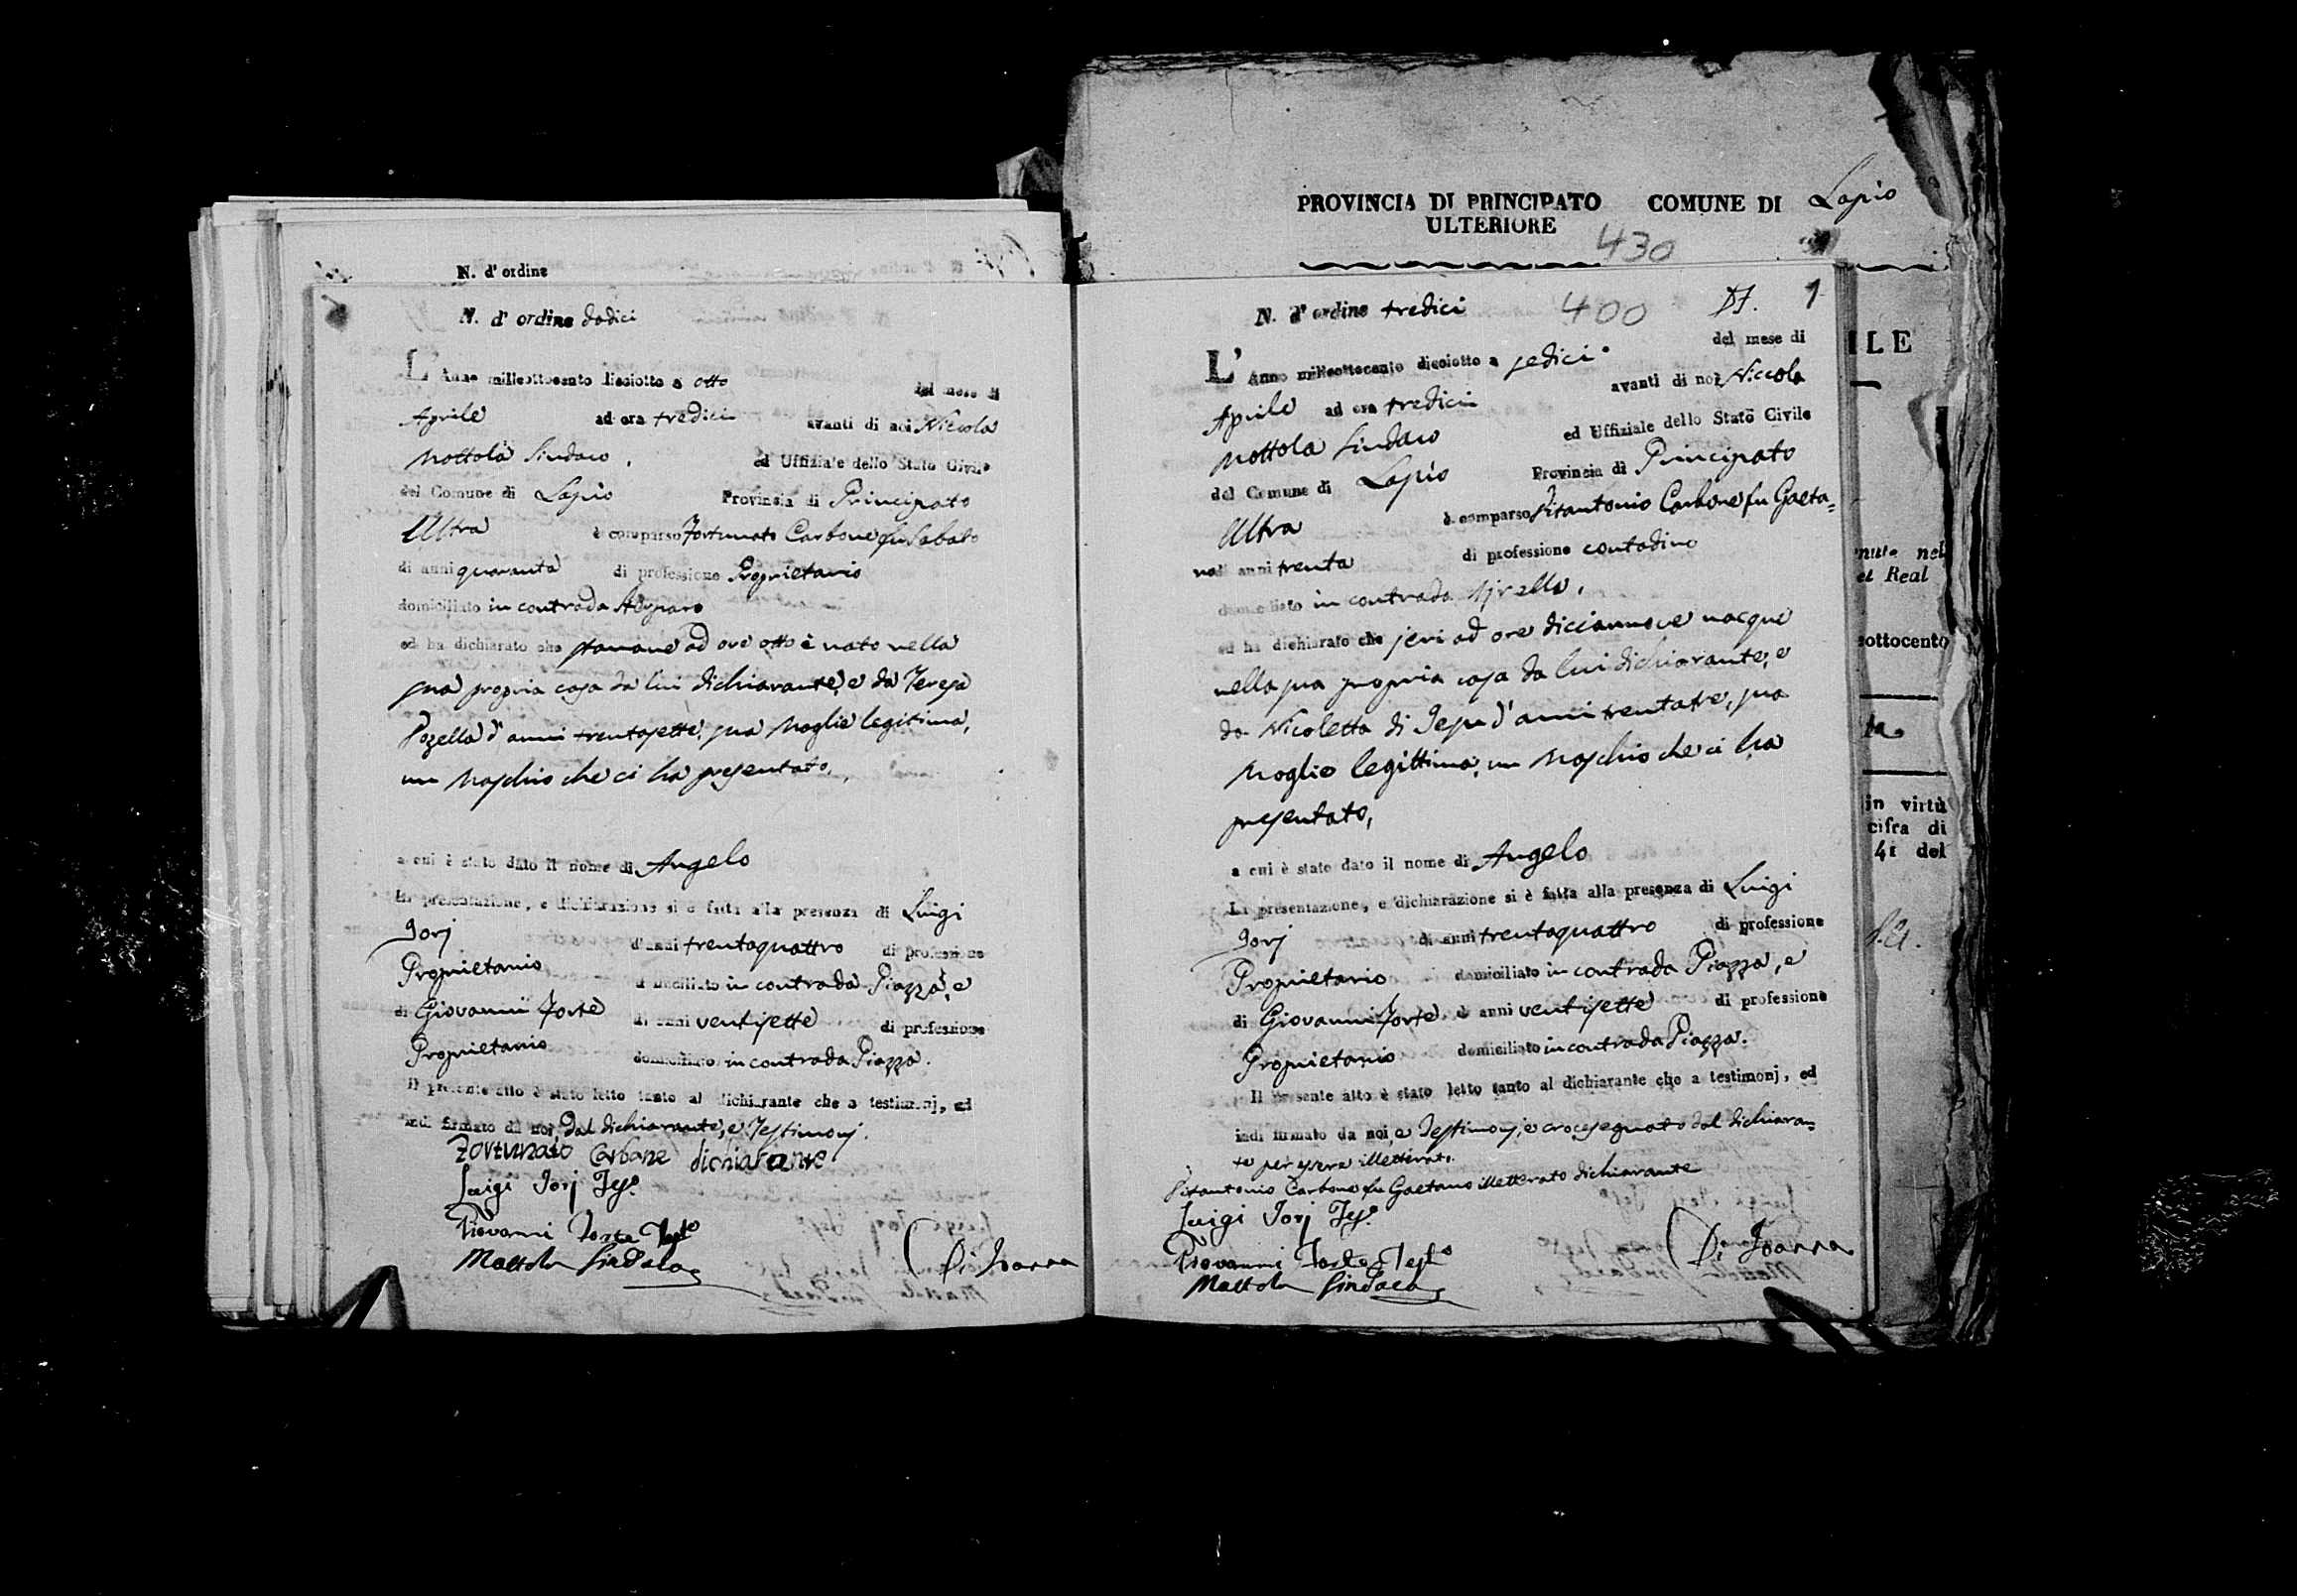 N. d' ordine
N. d' ordine dodici
L' Anno milleottocento dieciotto a otto del mese di
Aprile ad ora tredici avanti di noi Niccola
Mottola Sindaco, ed Uffiziale dello Stato Civile
del Comune di Lapio Provincia di Principato
Ultra è comparso Fortunato Carbone fu Sabato
di anni quaranta di professione Proprietario
domiciliato in contrada
ed ha dichiarato che stamane ad ore otto è nato nella
sua propria casa da lui dichiarante, e da Teresa
d' anni trentasette, sua Moglie legitima,
un Maschio che ci ha presentato,
a cui è stato dato il nome di Angelo
La presentazione, e dichiarazione si è fatta alla presenza di Luigi
Iorj d'anni trentaquattro di professione
Proprietario domiciliato in contrada Piazza, e
di Giovanni Forte di anni ventisette di professione
Proprietario domiciliato in contrada Piazza.
Il presente atto è stato letto tanto al dichiarante che a testimonj, ed
indi firmato da noi, dal dichiarante, e Testimonj.
Fortunato Carbone dichiarante
Luigi Iorj Tes.º
Giovanni Forte Testº
Mottola Sindaco
Di Ioanna
PROVINCIA DI PRINCIPATO COMUNE DI Lapio
ULTERIORE
430
N. d' ordine tredici 400 1
L' Anno milleottocento dieciotto a sedici del mese di
Aprile ad ora tredici avanti di noi Niccola
Mottola Sindaco ed Uffiziale dello Stato Civile
del Comune di Lapio Provincia di Principato
Ultra è comparso Vitantonio Carbone fu Gaeta=
no di anni trenta di professione contadino
domiciliato in contrada
ed ha dichiarato che jeri ad ore diciannove nacque
nella sua propria casa da lui dichiarante, e
da Nicoletta di d' anni trentatre, sua
Moglie legittima, un Maschio che ci ha
presentato,
a cui è stato dato il nome di Angelo
La presentazione, e dichiarazione si è fatta alla presenza di Luigi
Iorj di anni trentaquattro di professione
Proprietario domiciliato in contrada Piazza, e
di Giovanni Forte, di anni ventisette di professione
Proprietario domiciliato in contrada Piazza.
Il presente atto è stato letto tanto al dichiarante che a testimonj, ed
indi firmato da noi, e Testimonj, e crocesegnato dal dichiaran=
te per essere illetterato.
Vitantonio Carbone fu Gaetano illetterato dichiarante
Luigi Iorj Tes.º
Giovanni Forte Testº
Mottola Sindaco
Di Ioanna
ILE
nute nel
el Real
sottocento
in virtù
cifra di
41 del